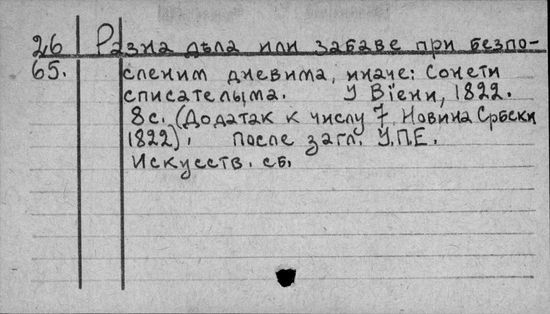 26 Разна дѣла или забаве при безпо-
65. сленим дневима, иначе: Сонети
списателыма. У Віени, 1822.
8с. (Додатак к числу 7 Новина Србски
1822). После загл. У.П.Е.
Искусств. сб.